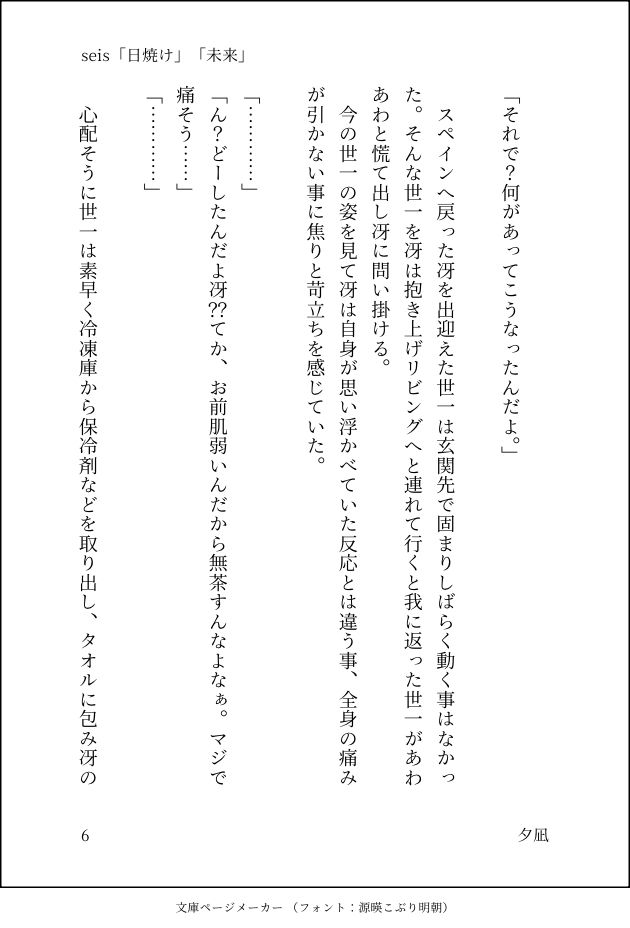 seis「日焼け」「未来」
「それで？何があってこうなったんだよ。」
　スペインへ戻った冴を出迎えた世一は玄関先で固まりしばらく動く事はなかっ
た。そんな世一を冴は抱き上げリビングへと連れて行くと我に返った世一があわ
あわと慌て出し冴に問い掛ける。
　今の世一の姿を見て冴は自身が思い浮かべていた反応とは違う事、全身の痛み
が引かない事に焦りと苛立ちを感じていた。
「…………」
「ん？どーしたんだよ冴⁇てか、お前肌弱いんだから無茶すんなよなぁ。マジで
痛そう……」
「…………」
　心配そうに世一は素早く冷凍庫から保冷剤などを取り出し、タオルに包み冴の
6
夕凪
文庫ページメーカー （フォント：源暎こぶり明朝）